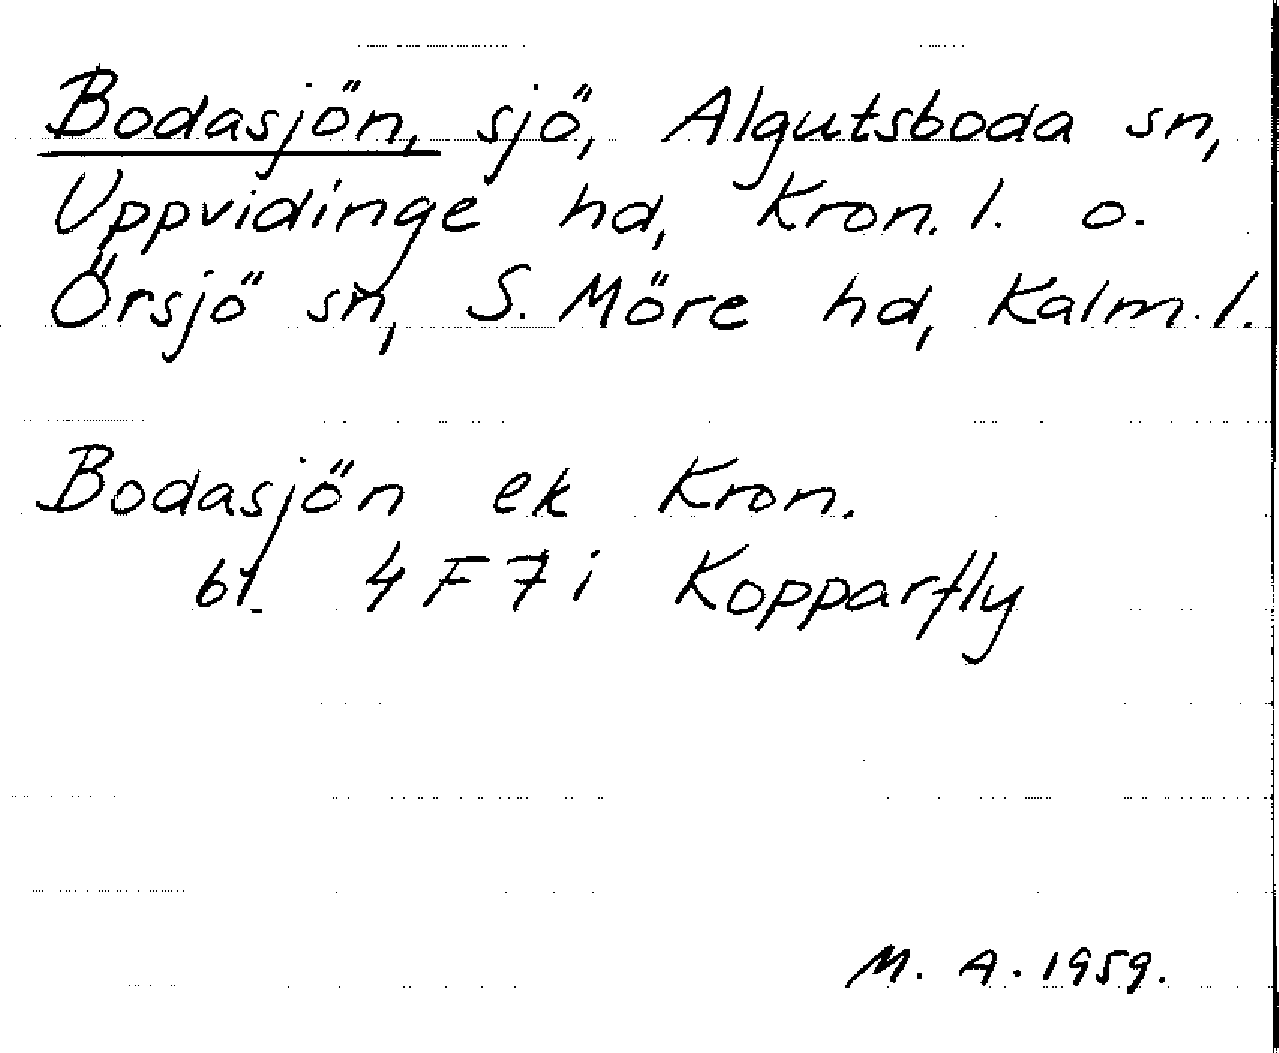 Bodasjön, sjö, Algutsboda sn,
Uppvidinge hd, Kron. l. o.
Örsjö sn, S. Möre hd, Kalm. l.
Bodasjön ek Kron.
bl. 4 F 7 i Kopparfly
M. A. 1959.